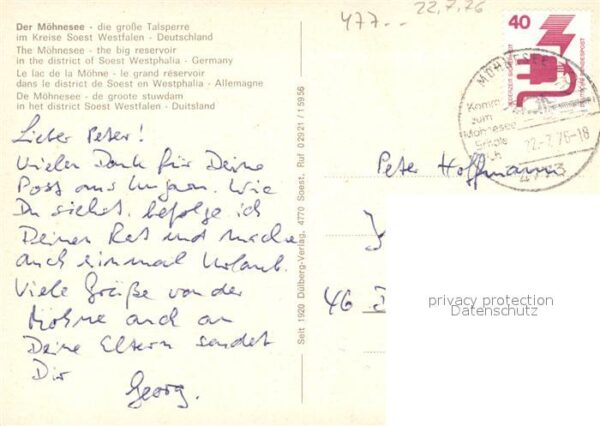 Der Möhnesee - die große Talsperre
im Kreise Soest Westfalen - Deutschland
The Möhnesee - the big reservoir
in the district of Soest Westphalia - Germany
Le lac de la Möhne - le grand réservoir
dans le district de Soest en Westphalia - Allemagne
De Möhnesee - de groote stuwdam
in het district Soest Westfalen - Duitsland
Lieber Peter!
Vielen Dank für Deine
Post aus Ungarn. Wie
Du siehst, befolge ich
Deinen Rat und mache
auch einmal Urlaub.
Viele Grüße von der
Möhne auch an
Deine Eltern sendet
Dir
Georg.
Seit 1920 Dülberg-Verlag, 4770 Soest, Ruf 0 29 21 / 1 59 56
477.--
22.7.76
40
DEUTSCHE BUNDESPOST
MÖHNESEE
Komm
zum
Möhnesee
22.-7.76-18
4773
Peter Hoffmann
46 D
privacy protection
Datenschutz